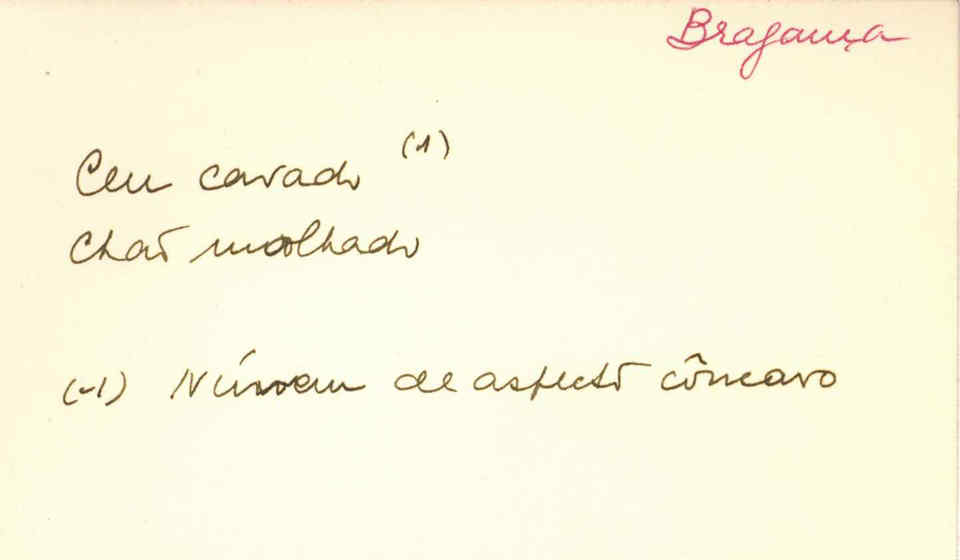 Bragança
Ceu cavado (1)
Chão molhado
(1) Núvem de aspecto côncavo